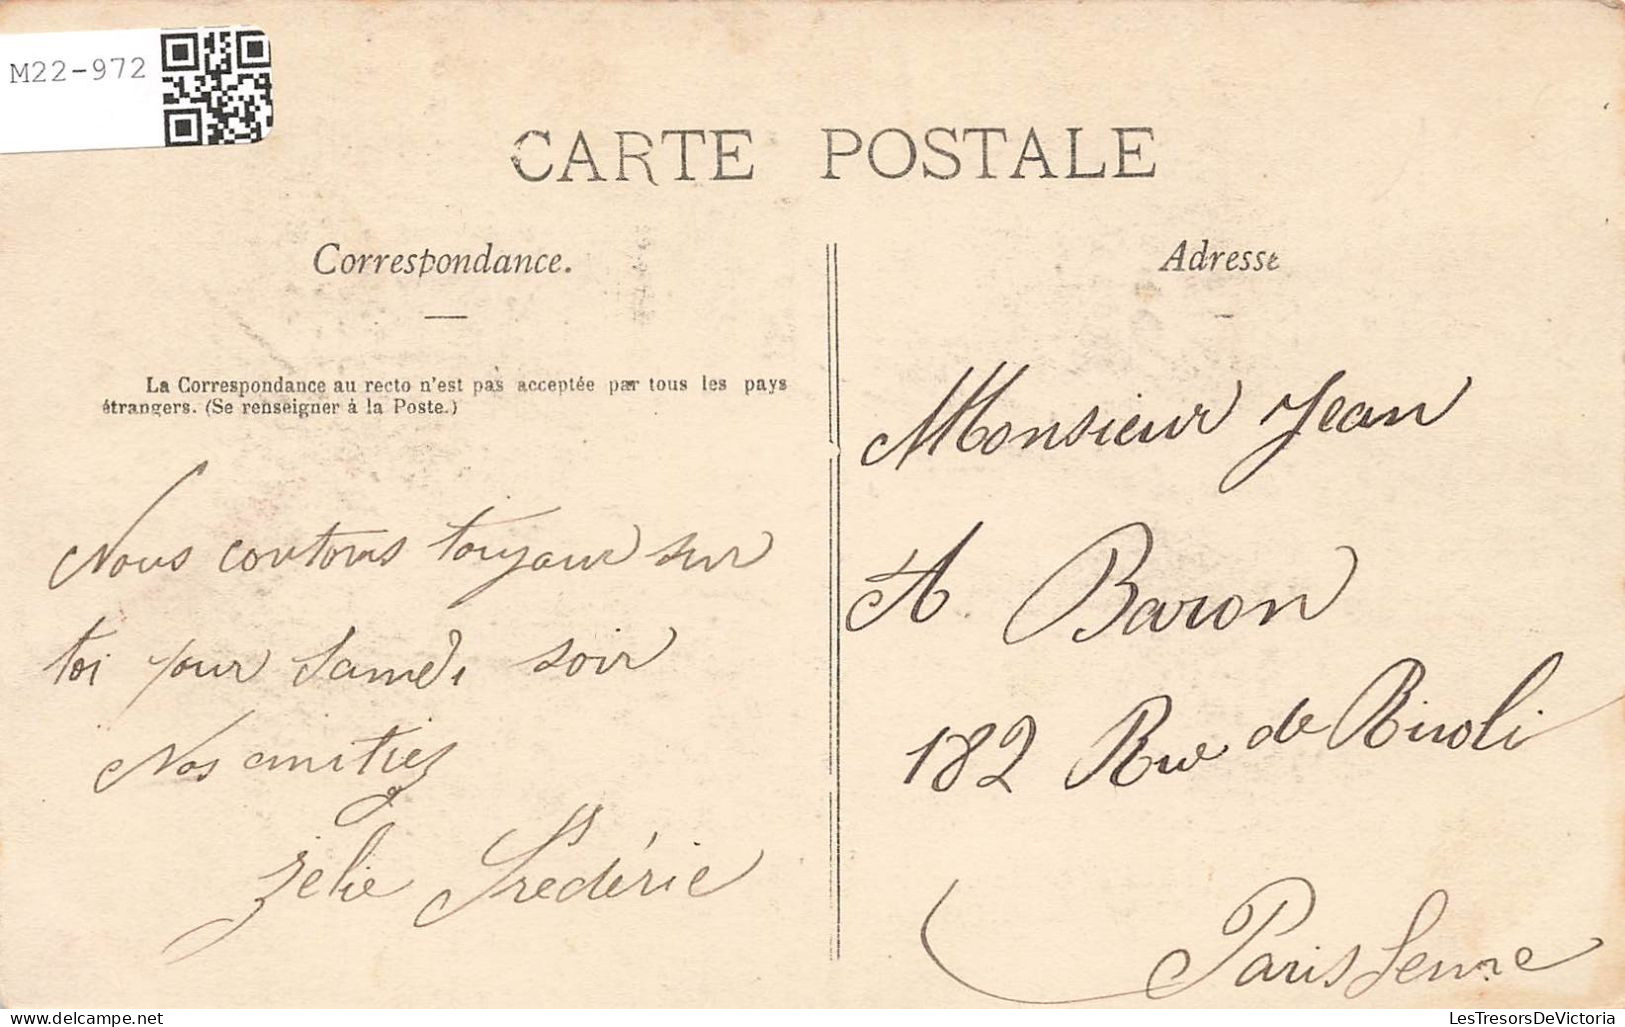 M22-972
CARTE POSTALE
Correspondance.
Adresse
La Correspondance au recto n'est pas acceptée par tous les pays
étrangers. (Se renseigner à la Poste.)
Nous contons toujour sur
toi pour Samedi soir
Nos amitiez
Zelie Frédéric
Monsieur Jean
A Baron
182 Rue de Rivoli
Paris Seine
delcampe.net
LesTresorsDeVictoria